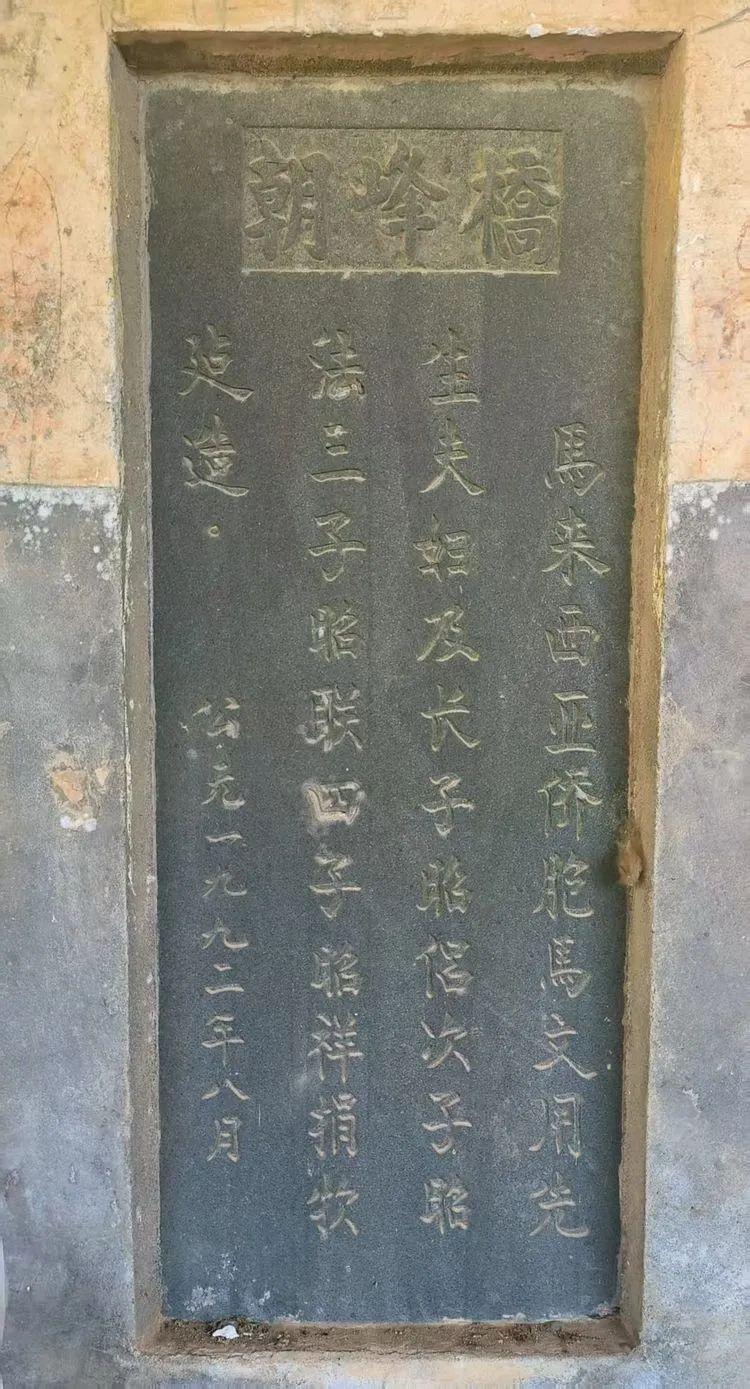 朝峰橋
馬来西亚侨胞馬文用先
生夫妇及长子昭侣次子昭
法三子昭联四子昭祥捐款
建造。
公元一九九二年八月